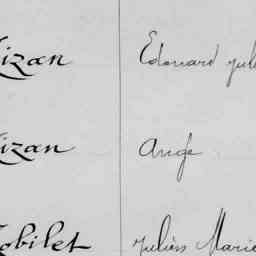 izan Edouard Jul
izan Ange
obilet Julien Marie